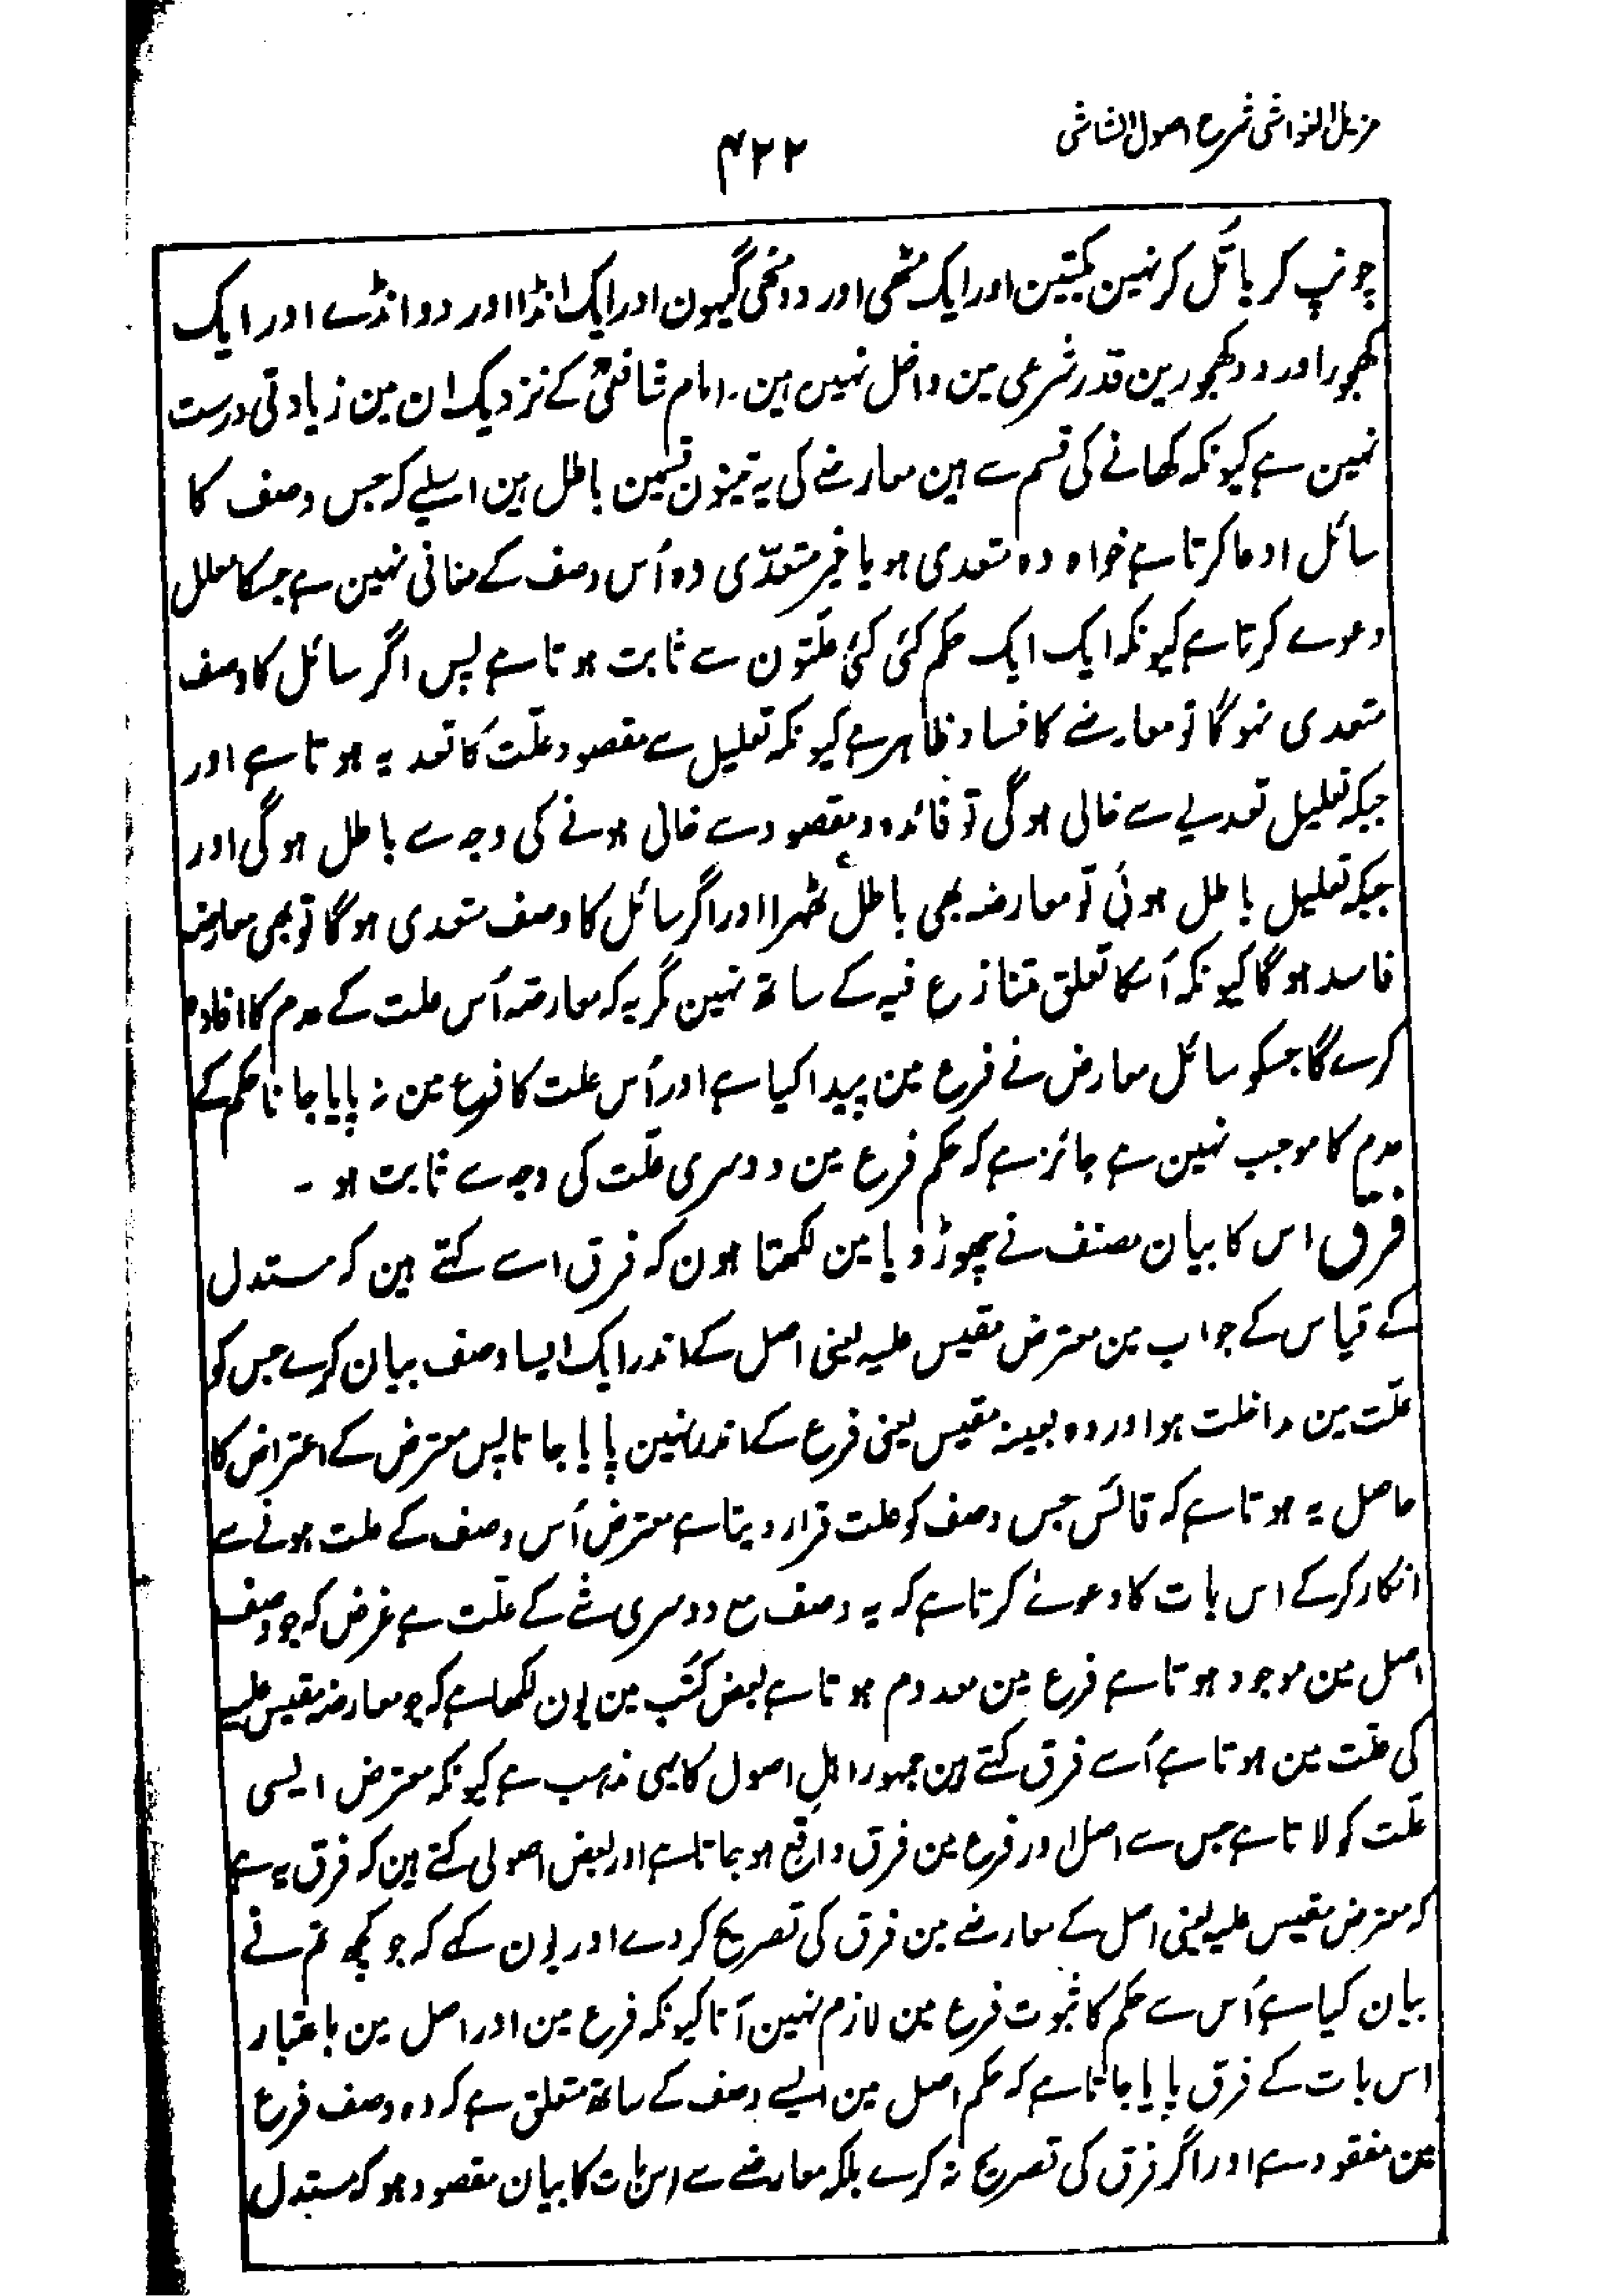 مزیل الغواشی شرح اصول الشاشی
۴۲۲
چونپ کر یا تُل کر نہین بکتین اور ایک مٹھی اور دو مٹھی گیہون اور ایک انڈا اور دو انڈے اور ایک
کھجور اور دو کھجورین قدر شرعی مین داخل نہیں ہین۔ امام شافعیؒ کے نزدیک ان مین زیادتی درست
نہین ہے کیونکہ کھانے کی قسم سے ہین معارضے کی یہ تینون قسمین باطل ہین اسلیے کہ جس وصف کا
سائل ادعا کرتا ہے خواہ وہ متعدی ہو یا غیر متعدّی وہ اُس وصف کے منافی نہین ہے جسکا معلل
دعوے کرتا ہے کیونکہ ایک ایک حکم کئی کئی علّتون سے ثابت ہوتا ہے پس اگر سائل کا وصف
متعدی نہوگا تو معارضے کا فساد ظاہر ہے کیونکہ تعلیل سے مقصود علّت کا تعدیہ ہوتا ہے اور
جبکہ تعلیل تعدیے سے خالی ہوگی تو فائدہ و مقصود سے خالی ہونے کی وجہ سے باطل ہوگی اور
جبکہ تعلیل باطل ہوئی تو معارضہ بھی باطل ٹھہرا اور اگر سائل کا وصف متعدی ہوگا تو بھی معارضہ
فاسد ہوگا کیونکہ اُسکا تعلق متنازع فیہ کے ساتھ نہین مگر یہ کہ معارضہ اُس علت کے عدم کا افادہ
کرے گا جسکو سائل معارض نے فرع مین پیدا کیا ہے اور اُس علت کا فرع مین نہ پایا جانا حکم کے
عدم کا موجب نہین ہے جائز ہے کہ حکم فرع مین دوسری علّت کی وجہ سے ثابت ہو۔
فرق اس کا بیان مصنف نے چھوڑ دیا مین لکھتا ہون کہ فرق اسے کہتے ہین کہ مستدل
کے قیاس کے جواب مین معترض مقیس علیہ یعنی اصل کے اندر ایک ایسا وصف بیان کرے جس کو
علّت مین مداخلت ہو اور وہ بعینہ مقیس یعنی فرع کے اندر نہین پایا جاتا پس معترض کے اعتراض کا
حاصل یہ ہوتا ہے کہ قائس جس وصف کو علت قرار دیتا ہے معترض اُس وصف کے علت ہونے سے
انکار کرکے اس بات کا دعوےٰ کرتا ہے کہ یہ وصف مع دوسری شے کے علّت ہے غرض کہ جو وصف
اصل مین موجود ہوتا ہے فرع مین معدوم ہوتا ہے بعض کتب مین یون لکھا ہے کہ جو معارضہ مقیس علیہ
کی علّت مین ہوتا ہے اُسے فرق کہتے ہین جمہور اہلِ اصول کا یہی مذہب ہے کیونکہ معترض ایسی
علّت کو لاتا ہے جس سے اصل اور فرع مین فرق واقع ہو جاتا ہے اور بعض اصولی کہتے ہین کہ فرق یہ ہے
کہ معترض مقیس علیہ یعنی اصل کے معارضے مین فرق کی تصریح کردے اور یون کہے کہ جو کچھ تم نے
بیان کیا ہے اُس سے حکم کا ثبوت فرع مین لازم نہین آتا کیونکہ فرع مین اور اصل مین باعتبار
اس بات کے فرق پایا جاتا ہے کہ حکم اصل مین ایسے وصف کے ساتھ متعلق ہے کہ وہ وصف فرع
مین مفقود ہے اور اگر فرق کی تصریح نہ کرے بلکہ معارضے سے اس بات کا بیان مقصود ہو کہ مستدل